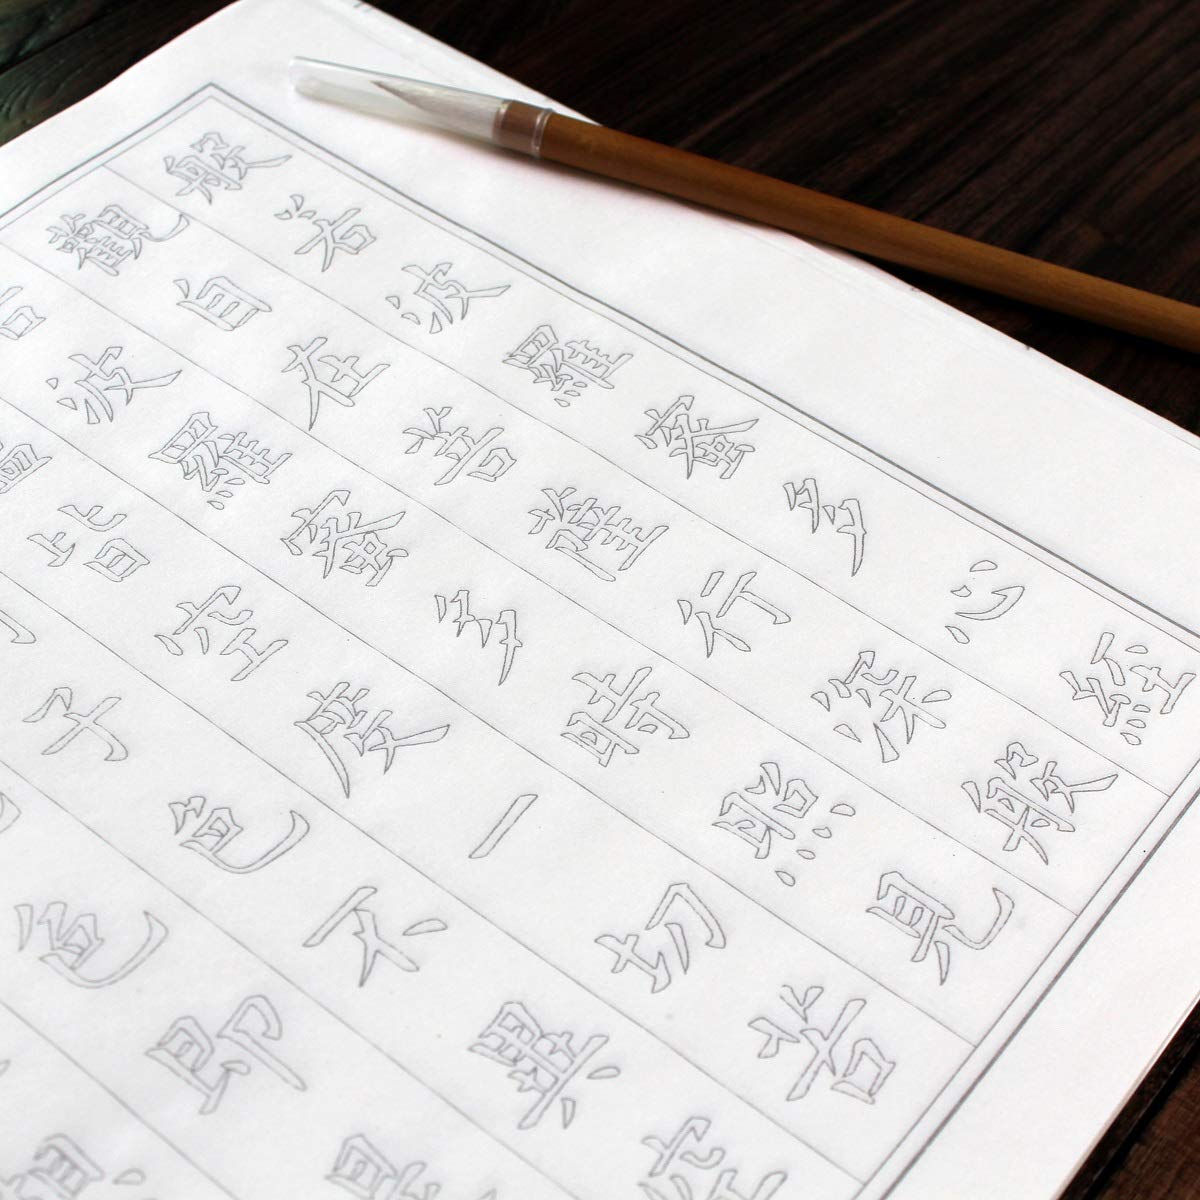 般若波羅蜜多心経
觀自在菩薩行深般
波羅蜜多時照見
皆空度一切苦
子色不異空
色即是